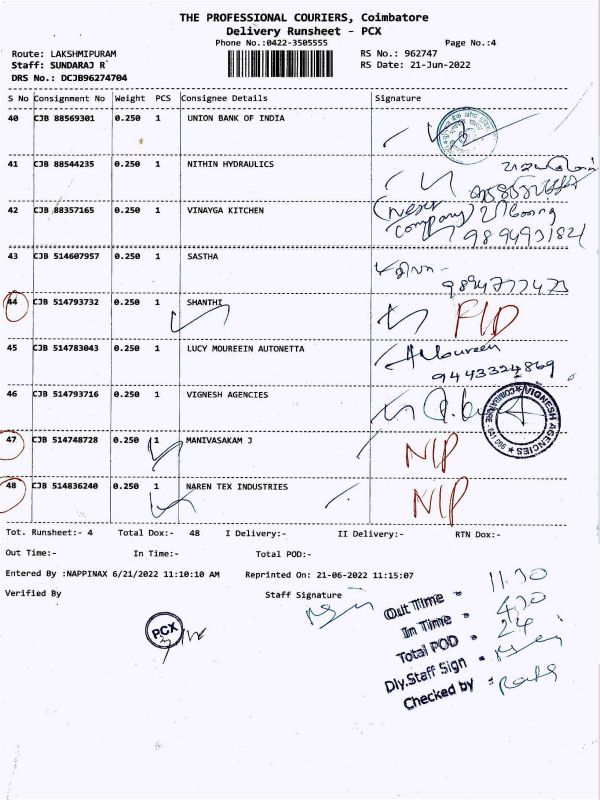 THE PROFESSIONAL COURIERS, Coimbatore
Delivery Runsheet - PCX
Phone No.:0422-3505555 Page No.:4
Route: LAKSHMIPURAM RS No.: 962747
Staff: SUNDARAJ R RS Date: 21-Jun-2022
DRS No.: DCJB96274704
S No Consignment No Weight PCS Consignee Details Signature
40 CJB 88569301 0.250 1 UNION BANK OF INDIA
41 CJB 88544235 0.250 1 NITHIN HYDRAULICS
42 CJB 88357165 0.250 1 VINAYGA KITCHEN
company)
43 CJB 514607957 0.250 1 SASTHA
44 CJB 514793732 0.250 1 SHANTHI
45 CJB 514783043 0.250 1 LUCY MOUREEIN AUTONETTA
9443324869
46 CJB 514793716 0.250 1 VIGNESH AGENCIES
VIGNESH AGENCIES
47 CJB 514748728 0.250 1 MANIVASAKAM J NIP
48 CJB 514836240 0.250 1 NAREN TEX INDUSTRIES NIP
Tot. Runsheet:- 4 Total Dox:- 48 I Delivery:- II Delivery:- RTN Dox:-
Out Time:- In Time:- Total POD:-
Entered By :NAPPINAX 6/21/2022 11:10:10 AM Reprinted On: 21-06-2022 11:15:07
Verified By Staff Signature
PCX
Out Time - 11.30
In Time - 4.30
Total POD - 24
Dly.Staff Sign -
Checked by -